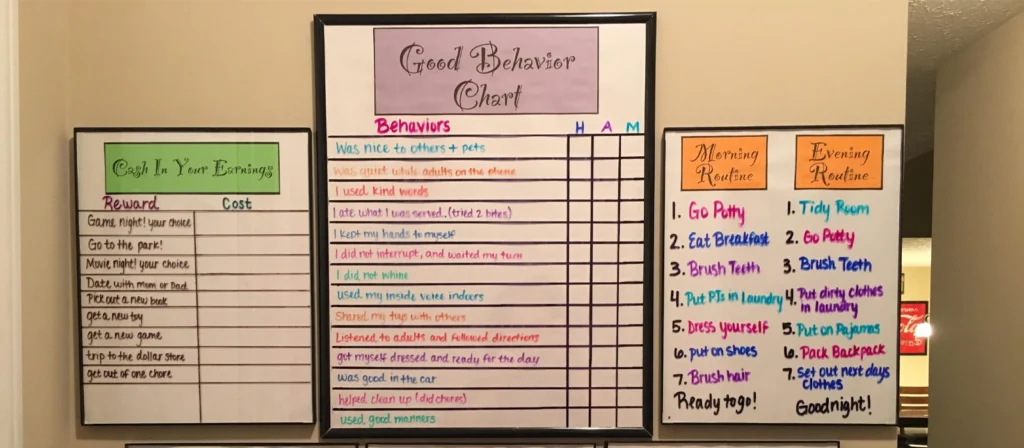 Cash In Your Earnings
Reward Cost
Game night! your choice
Go to the park!
Movie night! your choice
Date with mom or Dad
Pick out a new book
get a new toy
get a new game
trip to the dollar store
get out of one chore
Good Behavior
Chart
Behaviors H A M
Was nice to others + pets
Was quiet while adults on the phone
I used kind words
I ate what I was served. (tried 2 bites)
I kept my hands to myself
I did not interrupt, and waited my turn
I did not whine
used my inside voice indoors
Shared my toys with others
Listened to adults and followed directions
got myself dressed and ready for the day
was good in the car
helped clean up (did chores)
used good manners
Morning
Routine
1. Go Potty
2. Eat Breakfast
3. Brush Teeth
4. Put PJs in laundry
5. Dress yourself
6. put on shoes
7. Brush hair
Ready to go!
Evening
Routine
1. Tidy Room
2. Go Potty
3. Brush Teeth
4. Put dirty clothes
in laundry
5. Put on Pajamas
6. Pack Backpack
7. Set out next days
clothes
Goodnight!